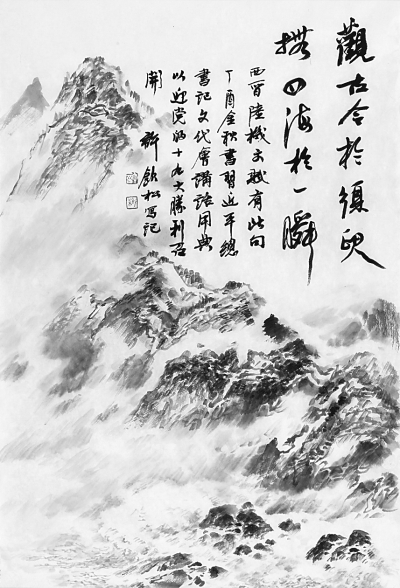 觀古今於須臾
撫四海於一瞬
西晉陸機文賦有此句
丁酉金秋書習近平總
書記文代會講話用典
以迎党的十九大勝利召
開 許欽松寫記